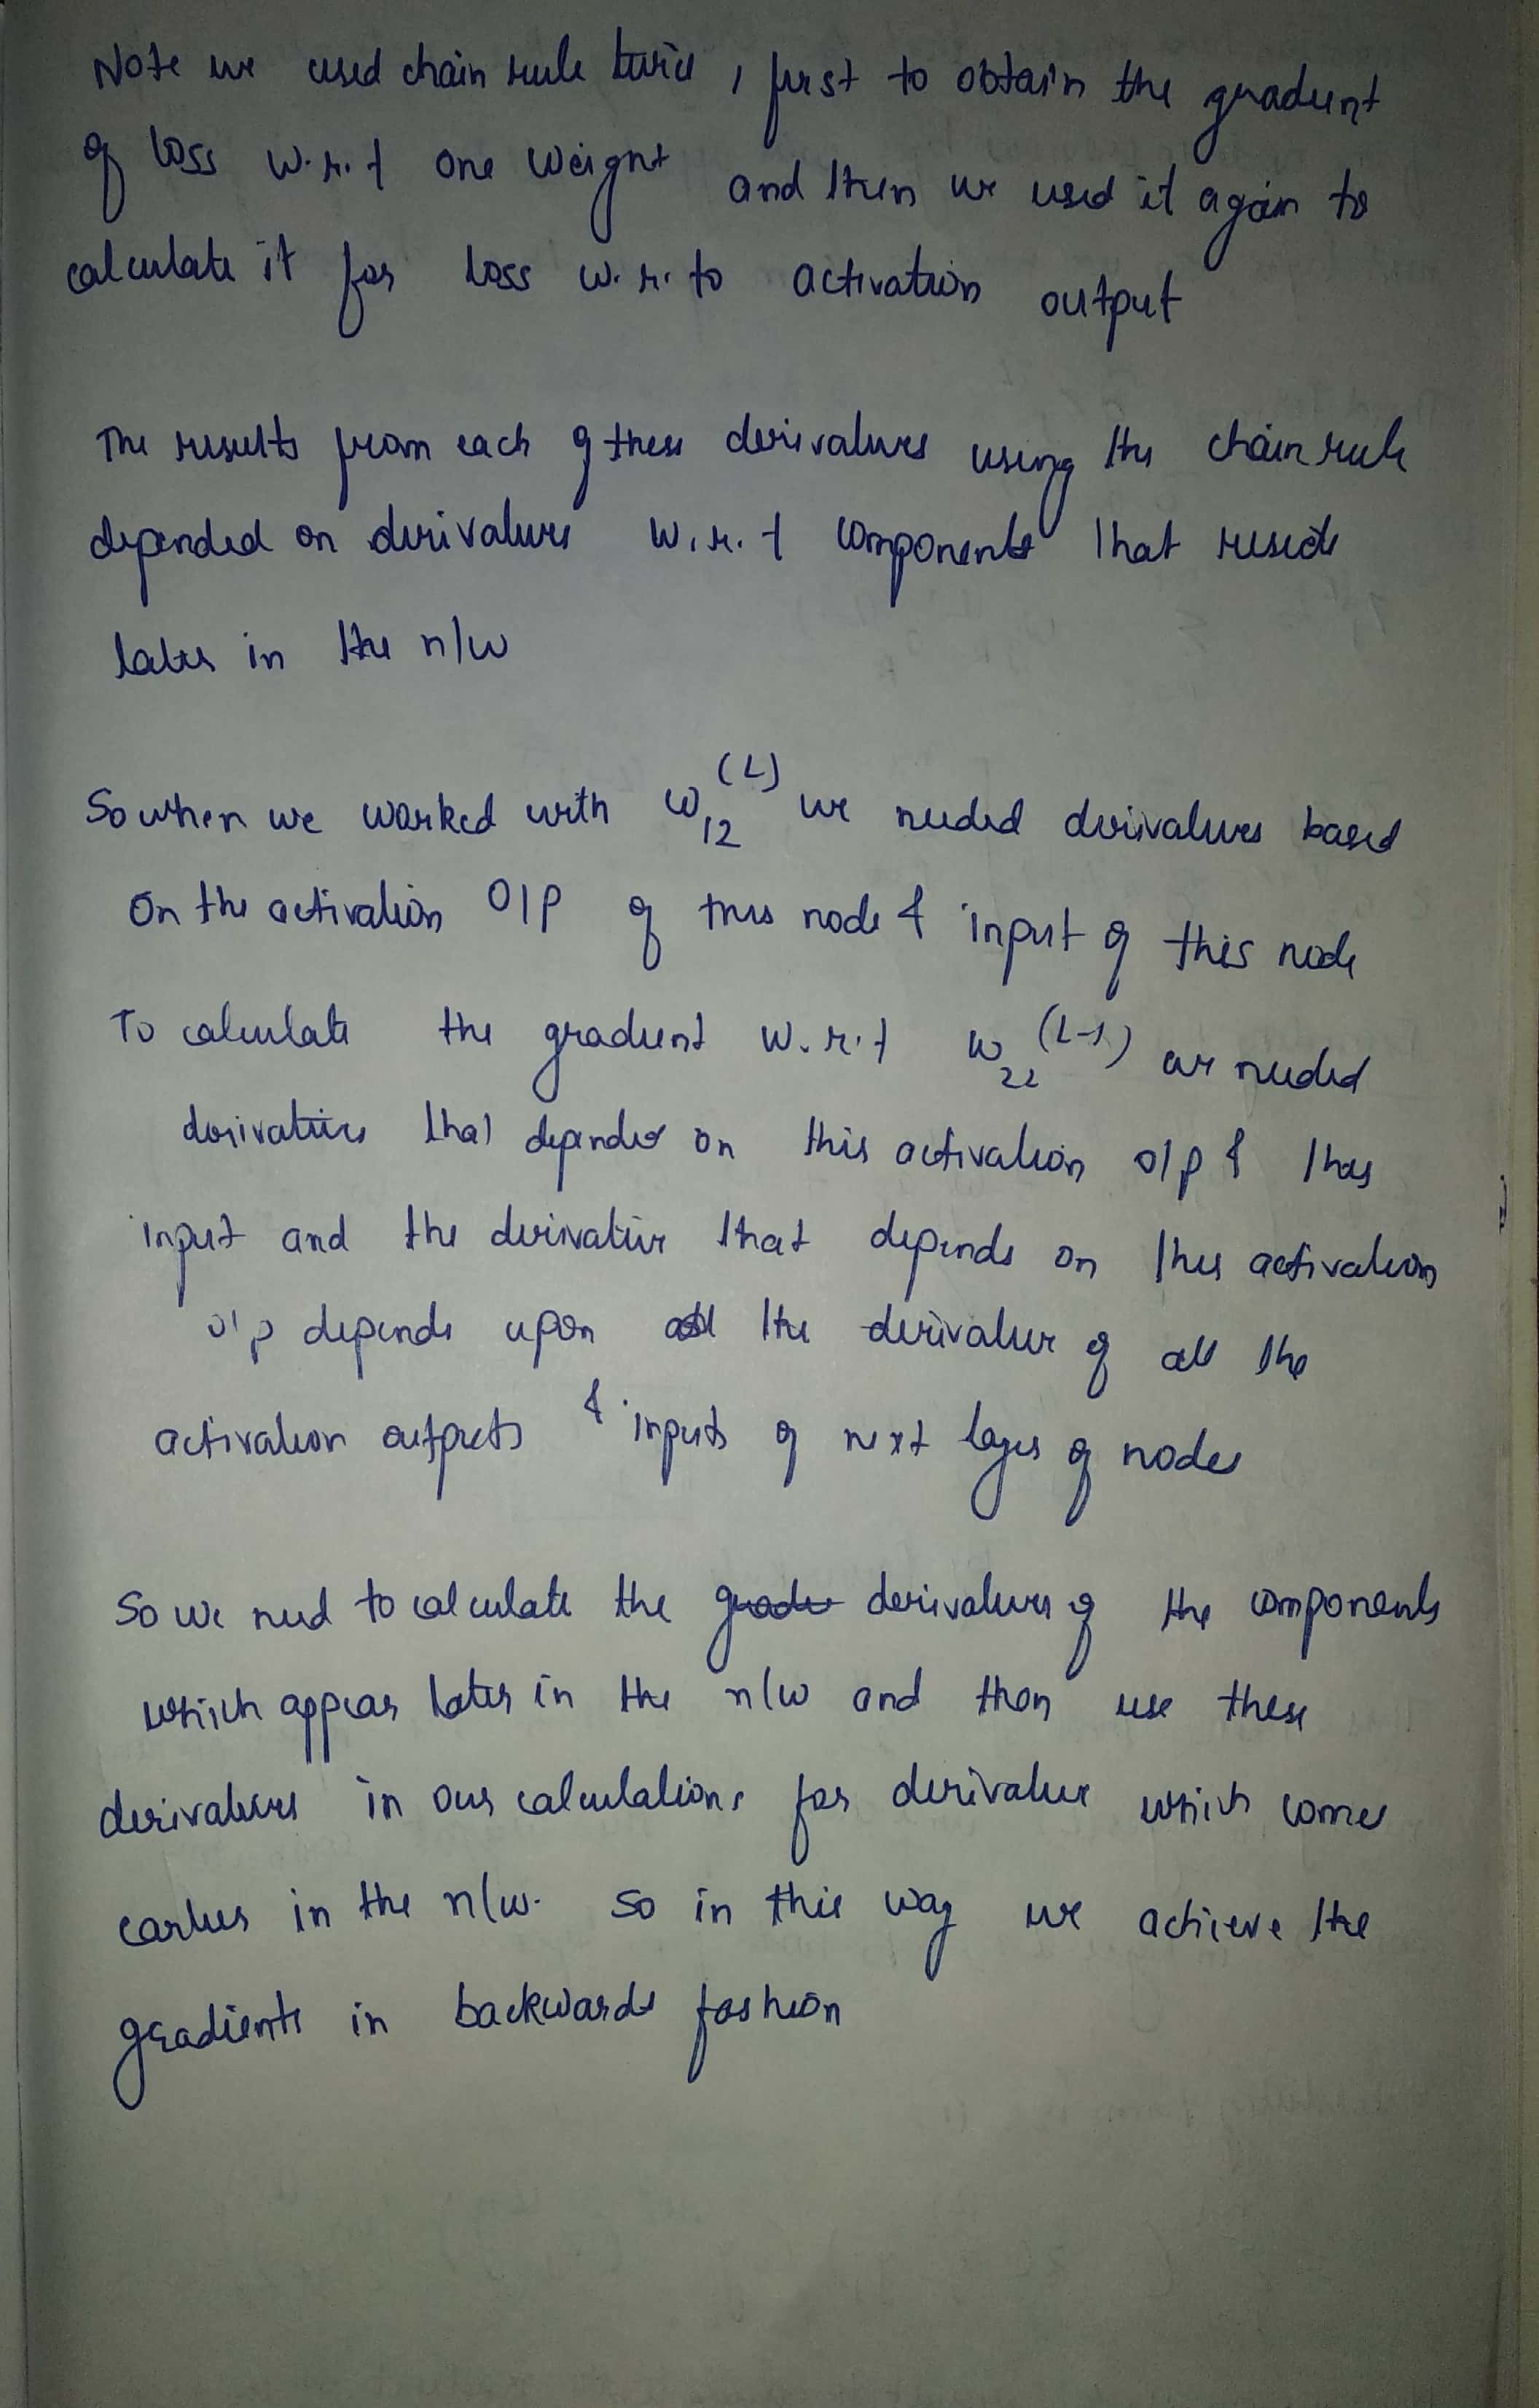 Note we used chain rule twice, first to obtain the gradient
of loss w.r.t one weight and then we used it again to
calculate it for loss w.r.to activation output
The results from each of these derivatives using the chain rule
depended on derivatives w.r.t components that reside
later in the n/w
So when we worked with w12^(L) we needed derivatives based
on the activation O/P of this node & input of this node
To calculate the gradient w.r.t w22^(L-1) we needed
derivatives that depended on this activation o/p & this
input and the derivative that depends on this activation
o/p depends upon the derivative of all the
activation outputs & inputs of next layer of nodes
So we need to calculate the derivatives of the components
which appear later in the n/w and then use these
derivatives in our calculations for derivative which comes
earlier in the n/w. So in this way we achieve the
gradients in backwards fashion